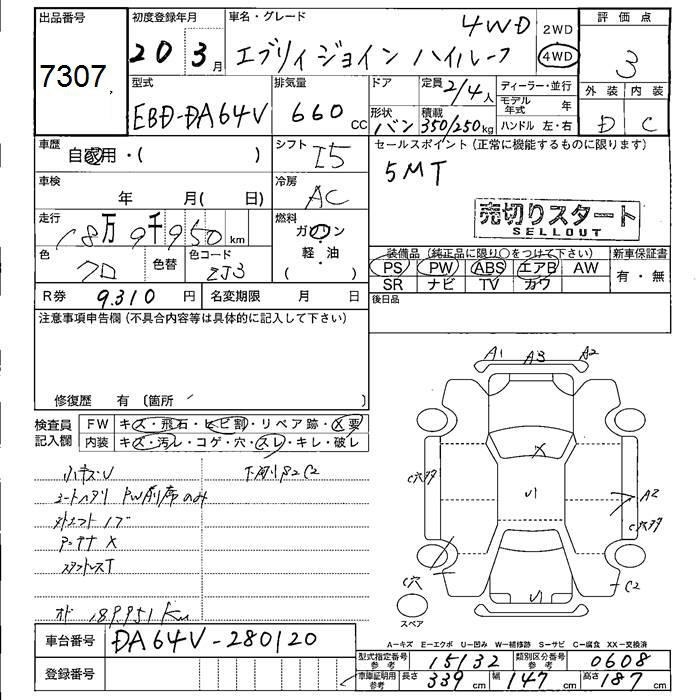 出品番号
7307
初度登録年月
20 3月
車名・グレード
4WD
エブリィジョイン ハイルーフ
2WD
4WD
評価点
3
外装 内装
D C
型式
EBD-DA64V
排気量
660cc
ドア
定員
2/4人
形状
バン
積載
350/250kg
ディーラー・並行
モデル年式 年
ハンドル 左・右
車歴
自家用・( )
シフト
I5
セールスポイント(正常に機能するものに限ります)
5MT
売切りスタート
SELLOUT
車検
年 月( 日)
冷房
AC
走行
18万9千950km
燃料
ガソリン
軽・油
( )
色
クロ
色替
色コード
ZJ3
装備品(純正品に限り○をつけて下さい)
PS PW ABS エアB AW
SR ナビ TV カワ
新車保証書
有・無
後日品
R券 9.310円
名変期限 月 日
注意事項申告欄(不具合内容等は具体的に記入して下さい)
修復歴 有〔箇所
検査員記入欄
FW キズ・飛石・ヒビ割・リペア跡・X要
内装 キズ・汚レ・コゲ・穴・スレ・キレ・破レ
小キズU
下廻りS2C2
PW前席のみ
アンテナX
スタッドレスT
189.951Km
A1 A3 A2
X
U
U
A2
C穴
C2
スペア
車台番号 DA64V-280120
登録番号
A-キズ E-エクボ U-凹み W-補修跡 S-サビ C-腐食 XX-交換済
型式指定番号参考 15132
類別区分番号参考 0608
車庫証明用参考
長さ 339cm
幅 147cm
高さ 187cm